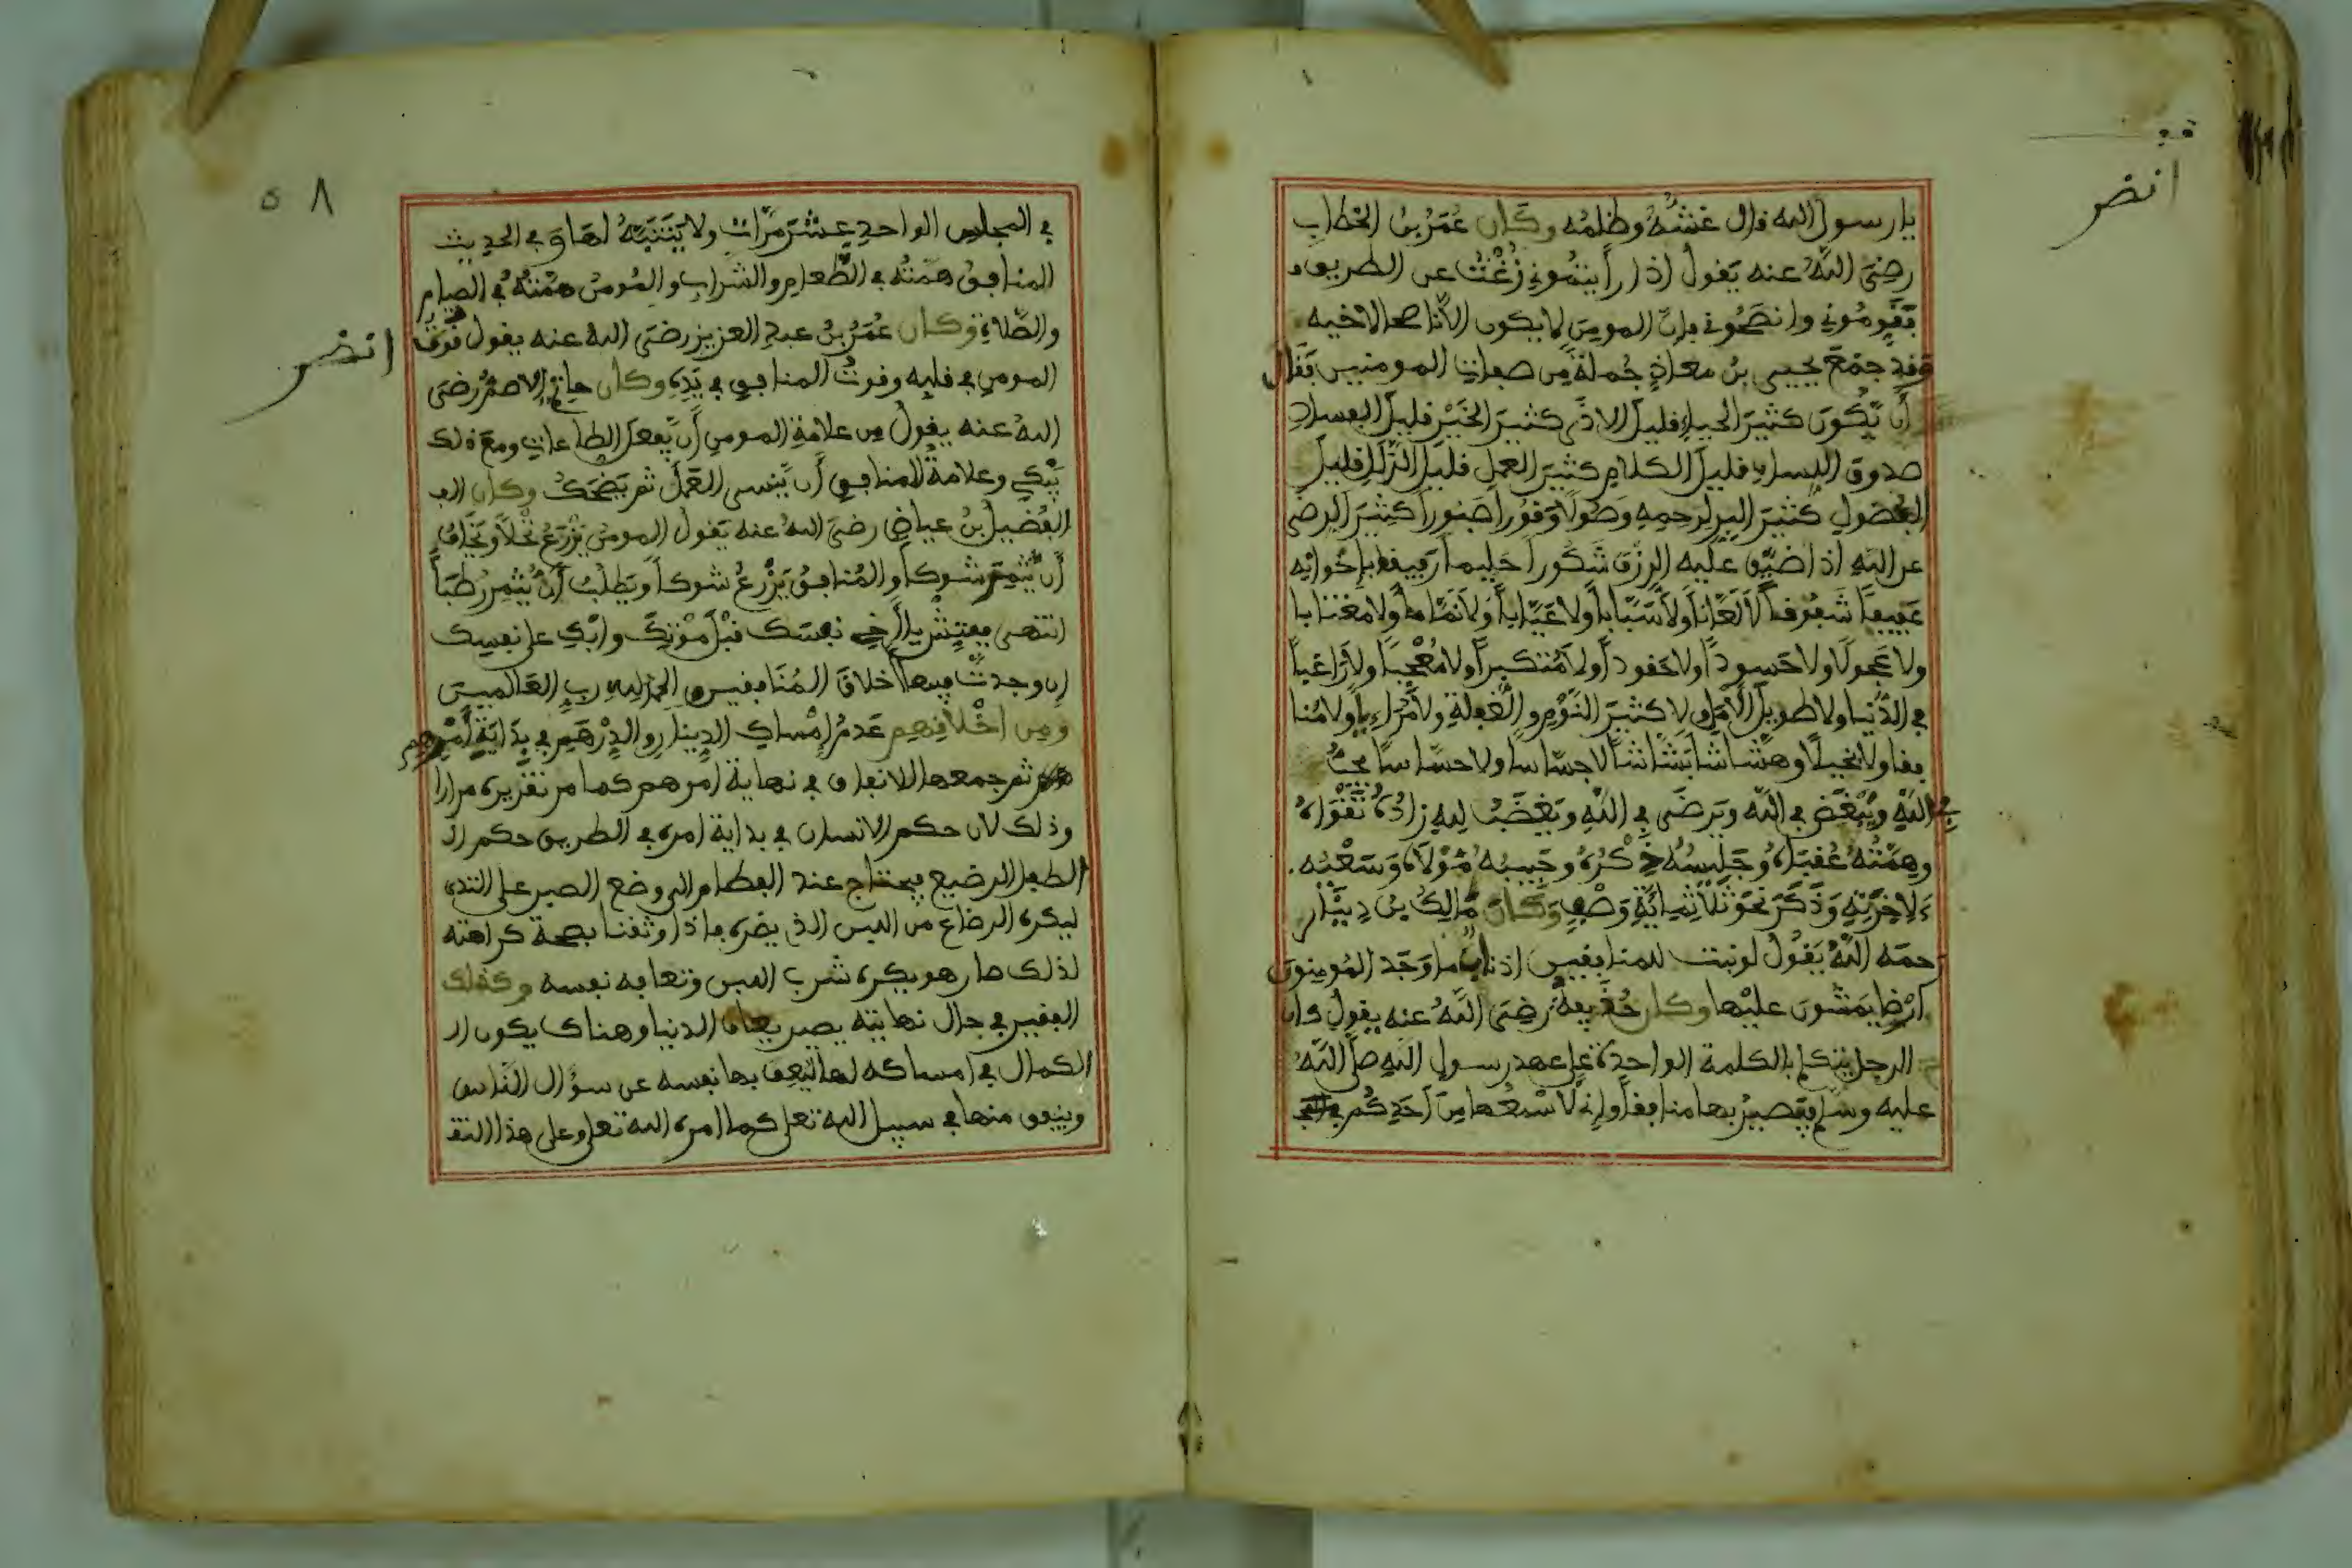 انضر
يا رسول الله قال غشه وظلمه وكان عمر بن الخطاب
رضي الله عنه يقول اذا رأيتموني زغت عن الطريق
فقوموني وانصحوني فإن المومن لا يكون الا ناصحا لاخيه
وقد جمع يحيى بن معاذ جملة من صفات المومنين فقال
أن يكون كثير الحياء قليل الاذى كثير الخير قليل الفساد
صدوق اللسان قليل الكلام كثير العمل قليل الزلل قليل
الفضول كثير البر لرحمه وصولا وقورا صبورا كثير الرضى
عن الله اذا ضيق عليه الرزق شكورا حليما رفيقا بإخوانه
عفيفا شفوقا لا لعانا ولا سبابا ولا عيابا ولا نماما ولا مغتابا
ولا عجولا ولا حسودا ولا حقودا ولا متكبرا ولا معجبا ولا راغبا
في الدنيا ولا طويل الأمل ولا كثير النوم والغفلة ولا مراءيا ولا منا
فقا ولا بخيلا وهشاشا بشاشا لا جساسا ولا حساسا يحب
في الله ويبغض في الله ويرضى في الله ويغضب لله زاده تقواه
وهمته عقباه وجليسه ذكره وحبيبه مولاه وسعيه
ءلاخرته وذكر نحو ثلاثماية وصف وكان مالك بن دينار
رحمه الله يقول لو نبت للمنافقين اذناب ما وجد المومنون
أرضا يمشون عليها وكان حذيفة رضي الله عنه يقول كان
الرجل يتكلم بالكلمة الواحدة على عهد رسول الله صلى الله
عليه وسلم فيصير بها منافقا وإني لأسمعها من أحدكم
٥٨
في المجلس الواحد عشر مرات ولا يتنبه لها وفي الحديث
المنافق همته في الطعام والشراب والمومن همته في الصيام
والصلاة وكان عمر بن عبد العزيز رضي الله عنه يقول قوة
انضر
المومن في قلبه وقوت المنافق في يده وكان حاتم الاصم رضي
الله عنه يقول من علامة المومن أن يفعل الطاعات ومع ذلك
يبكي وعلامة المنافق أن ينسى العمل ثم يضحك وكان الف
الفضيل بن عياض رضي الله عنه يقول المومن يزرع نخلا ويخاف
أن يثمر شوكا والمنافق يزرع شوكا ويطلب أن يثمر رطبا
انتهى ففتش يا أخي نفسك قبل موتك وابك على نفسك
إن وجدت فيها أخلاق المنافقين والحمد لله رب العالمين
ومن اخلاقهم عدم إمساك الدينار والدرهم في بداية أمرهم
ثم جمعها للانفاق في نهاية امرهم كما مر تقريره مرارا
وذلك لان حكم الانسان في بداية امره في الطريق حكم ال
الطفل الرضيع فيحتاج عند الفطام الى وضع الصبر على الثدي
ليكره الرضاع من اللبن الذي يضره فاذا وثقنا بصحة كراهته
لذلك صار هو يكره شرب اللبن وتعافه نفسه وكذلك
الفقير في حال نهايته يصير يعاف الدنيا وهناك يكون ال
الكمال في امساكه لها ليعف بها نفسه عن سؤال الناس
وينفق منها في سبيل الله تعلى كما امره الله تعلى وعلى هذا التق